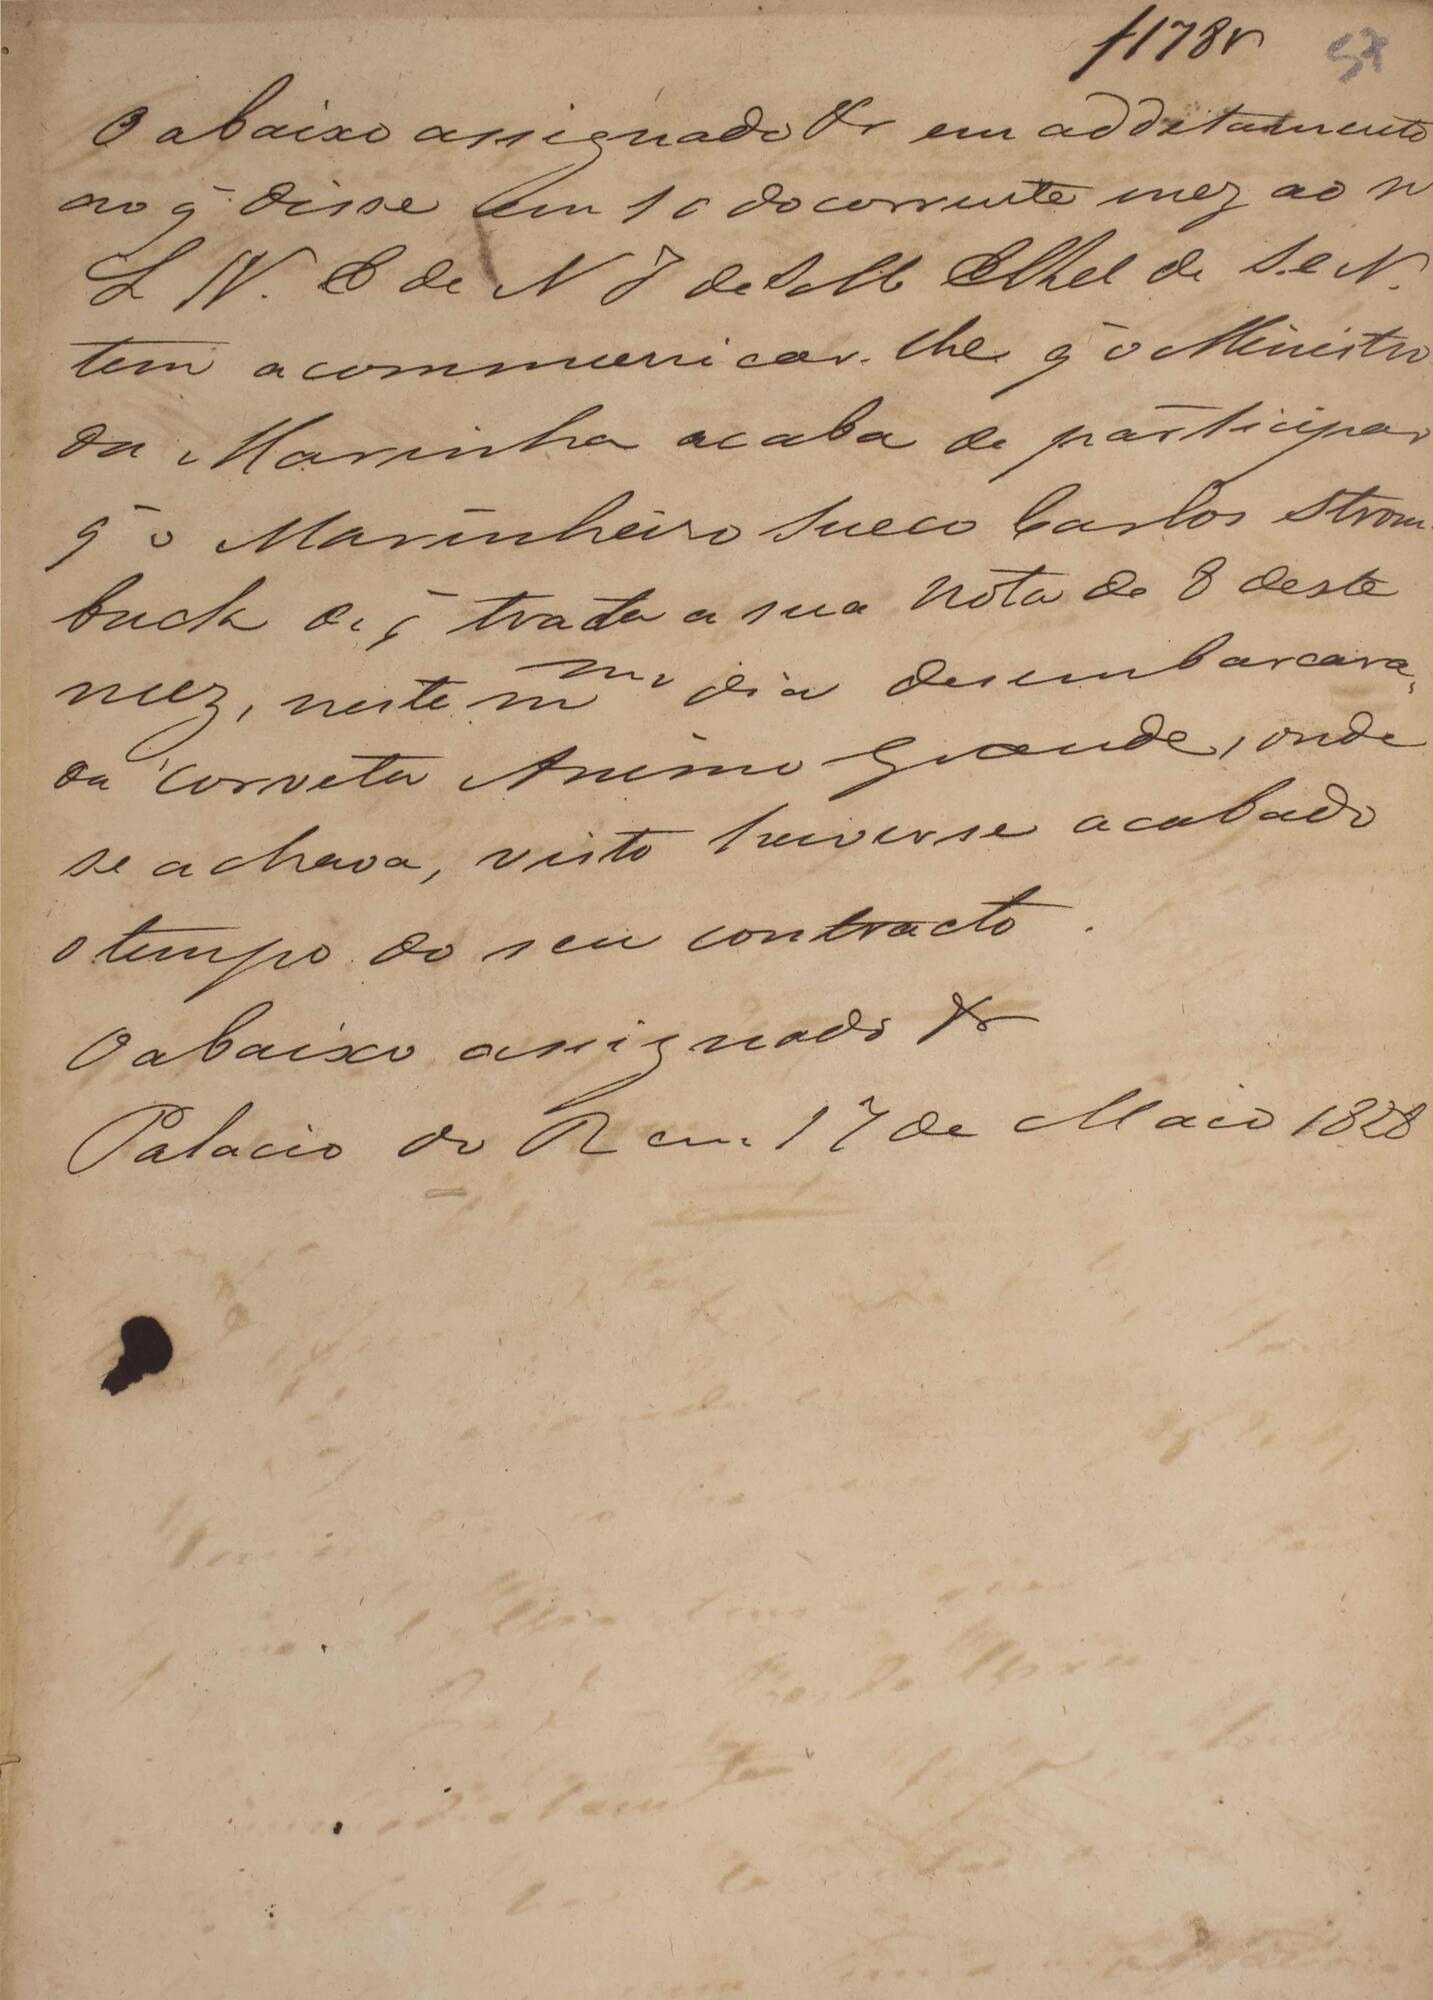 f178v 57
O abaixo assignado &r em additamento
ao q̄ disse em 10 do corrente mez ao Sr
L W. C de N 7 de S M ElRel de S. e N.
tem a communicar-lhe q̄ o Ministro
da Marinha acaba de participar
q̄ o Marinheiro Sueco Carlos Strom-
back de q̄ trata a sua Nota de 8 deste
mez, neste mmo dia desembarcara,
da Corveta Animo Grande, onde
se achava, visto haver-se acabado
o tempo do seu contracto.
O abaixo assignado &r
Palacio do R em 17 de Maio 1828